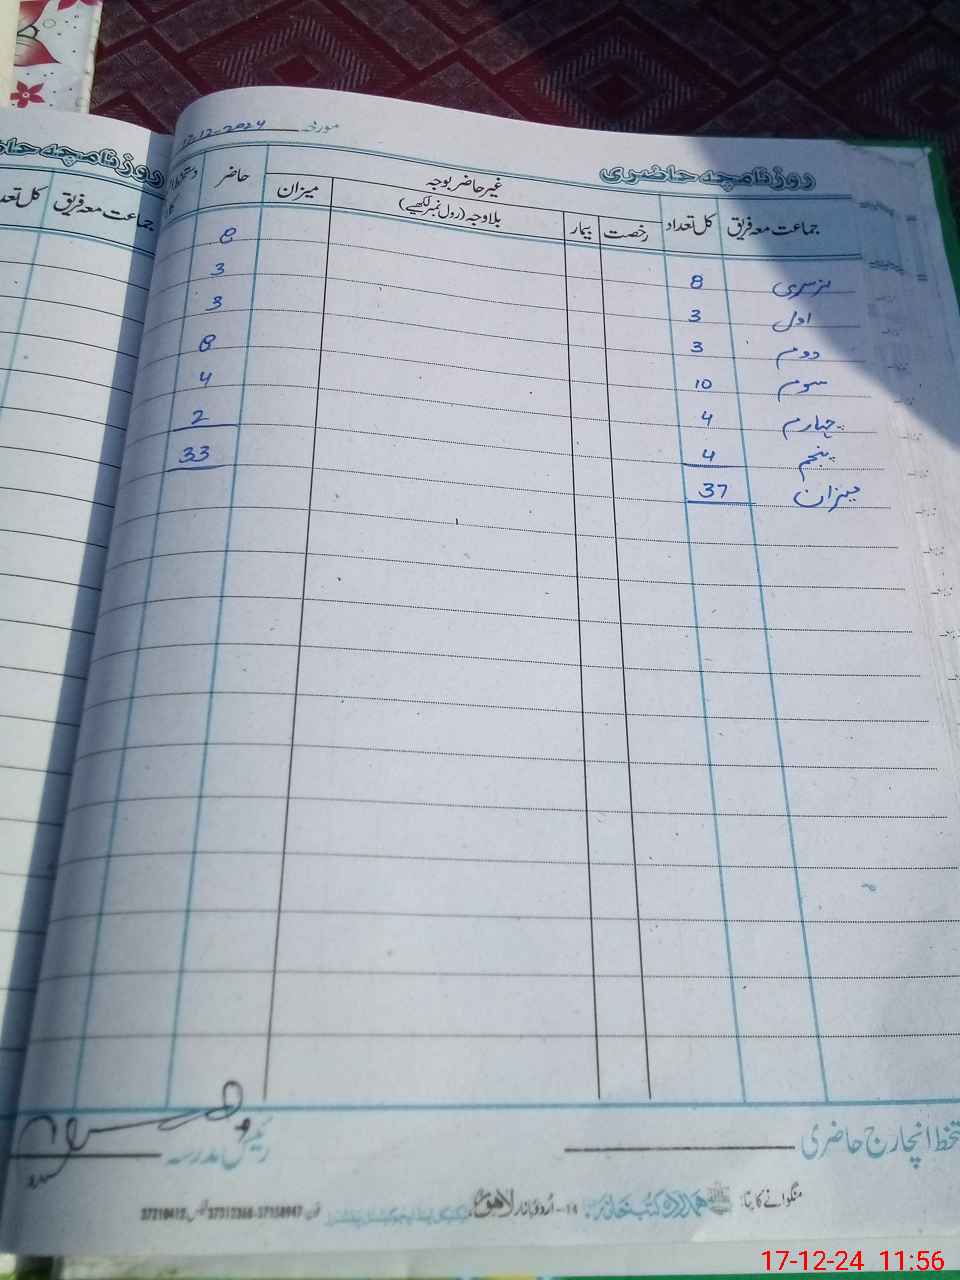 مورخہ 12-12-2024
روزنامچہ حاضری
جماعت معہ فریق کل تعداد رخصت بیمار غیر حاضر بوجہ بلاوجہ (رول نمبر لکھیے) میزان حاضر
نرسری 8 8
اول 3 3
دوم 3 3
سوم 10 8
چہارم 4 4
پنجم 4 2
میزان 37 33
روزنامچہ
جماعت معہ فریق
انچارج حاضری رئیس مدرسہ
منگوانے کا پتا: ہمدرد کتب خانہ 14-اُردو بازار لاہور
17-12-24 11:56